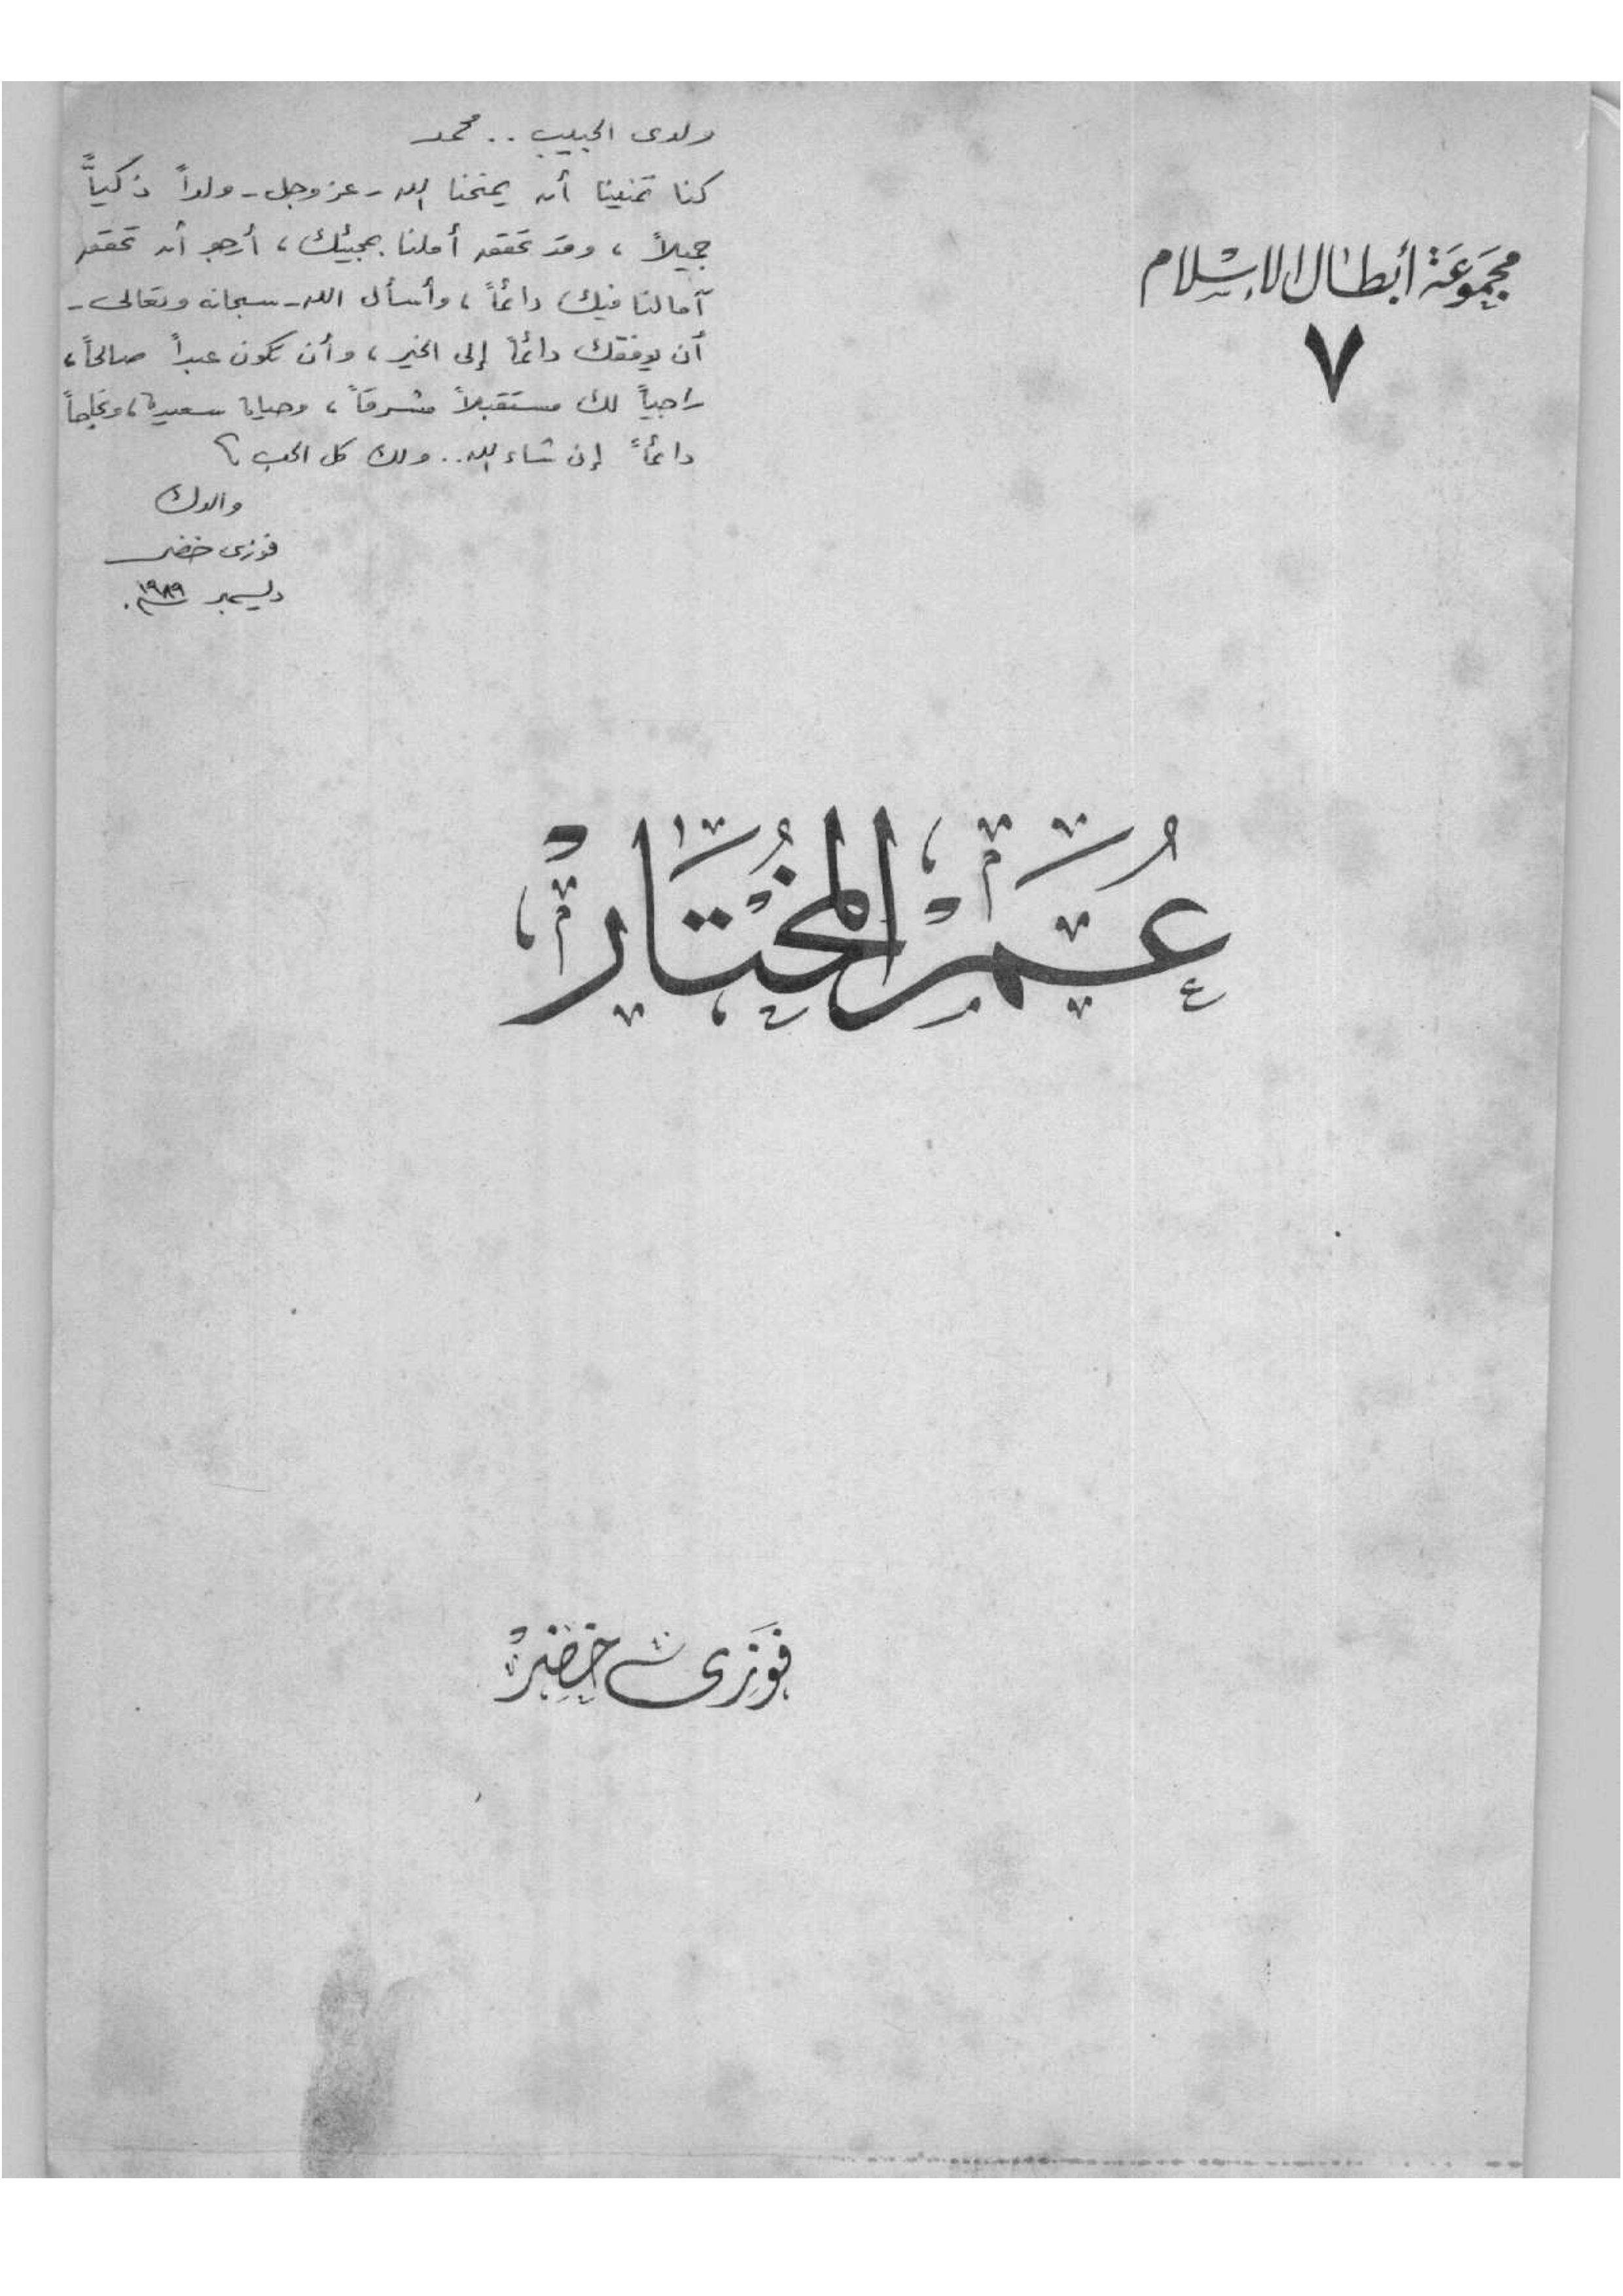 مجموعة أبطال الإسلام
٧
ولدى الحبيب .. محمد
كنا تمنينا أن يمنحنا الله - عز وجل - ولداً ذكياً
جميلاً ، وقد تحقق أملنا بمجيئك ، أرجو أن تحقق
آمالنا فيك دائماً ، وأسأل الله - سبحانه وتعالى -
أن يوفقك دائماً إلى الخير ، وأن تكون عبداً صالحاً ،
راجياً لك مستقبلاً مشرقاً ، وحياة سعيدة ، ونجاحاً
دائماً إن شاء الله .. ولك كل الحب
والدك
فوزى خضر
ديسمبر ١٩٨٩م.
عُمَرْ المُخْتَارْ
فوزى خضر